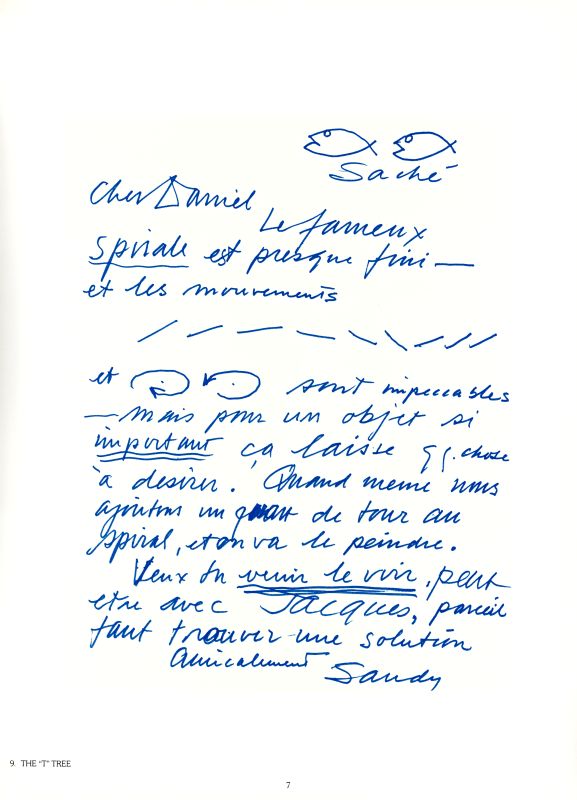 Saché
Cher Daniel
Le fameux
spirale est presque fini —
et les mouvements
et sont impeccables
— mais pour un objet si
important ça laisse q q. chose
à desirer. Quand meme nous
ajoutons un quart de tour au
spiral, et on va le peindre.
Veux tu venir le voir, peut
etre avec JAcques, 
faut trouver une solution
Amicalement Sandy
9. THE "T" TREE
7